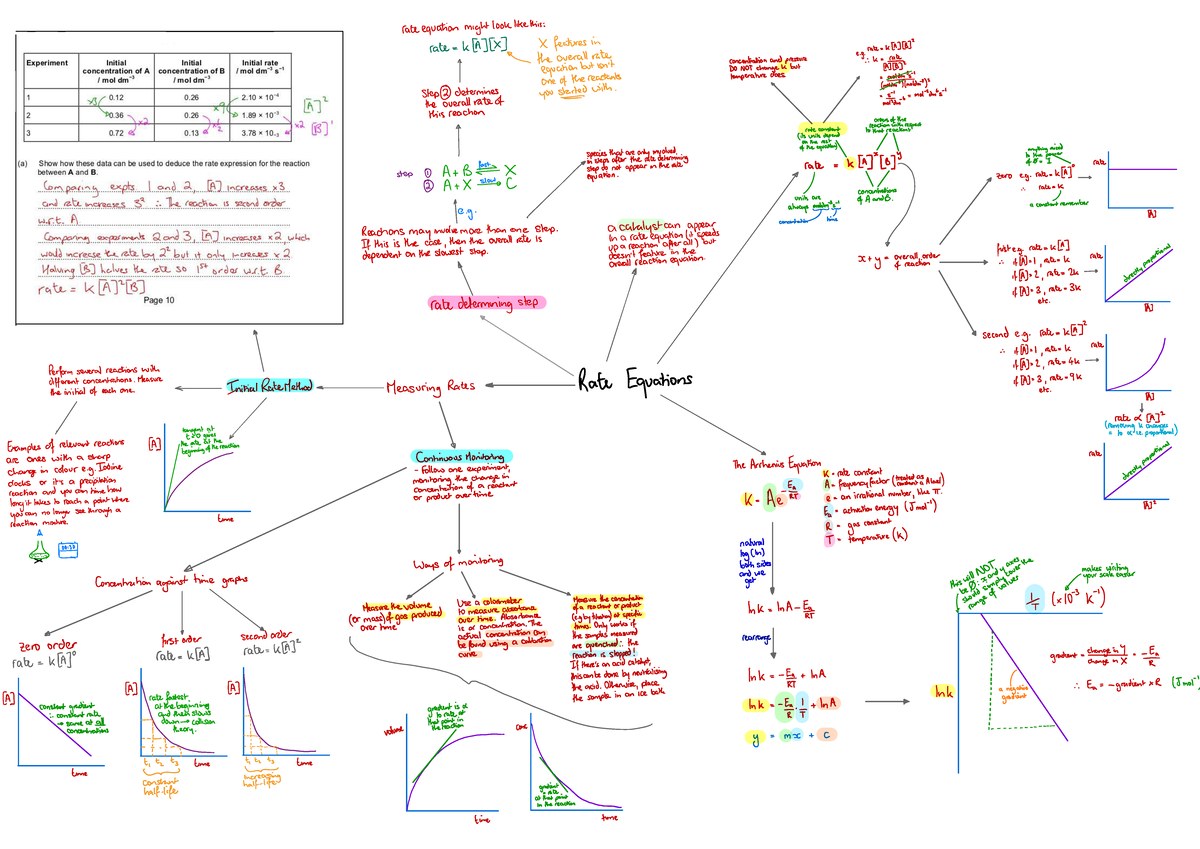 Experiment
Initial concentration of A / mol dm⁻³
Initial concentration of B / mol dm⁻³
Initial rate / mol dm⁻³ s⁻¹
1 0.12 0.26 2.10 × 10⁻⁴
2 0.36 0.26 1.89 × 10⁻³
3 0.72 0.13 3.78 × 10₋₃
x3
x2
x9
x½
x2
[A]²
[B]¹
(a) Show how these data can be used to deduce the rate expression for the reaction
between A and B.
Comparing expts. 1 and 2, [A] increases x3
and rate increases 3² ∴ The reaction is second order
w.r.t. A
Comparing experiments 2 and 3, [A] increases x2, which
would increase the rate by 2² but it only increases x2
Halving [B] halves the rate so 1st order w.r.t. B
rate = k[A]²[B]
Page 10
rate equation might look like this:
rate = k[A][X]
X features in
the overall rate
equation but isn't
one of the reactants
you started with.
Step ② determines
the overall rate of
this reaction
step ① A + B fast X
② A + X slow C
e.g.
Reactions may involve more than one step.
If this is the case, then the overall rate is
dependent on the slowest step.
rate determining step
species that are only involved
in steps after the rate determining
step do not appear in the rate
equation.
a catalyst can appear
in a rate equation (it speeds
up a reaction after all) but
doesn't feature in the
overall reaction equation.
Concentration and pressure
DO NOT change k but
temperature does
e.g. rate = k[A][B]²
∴ k = rate
[A][B]²
rate constant
(its units depend
on the rest
of the equation)
orders of the
reaction with respect
to that reactions
rate = k[A]ˣ[B]ʸ
units are
always moldm⁻³s⁻¹
concentration
time
concentrations
of A and B.
x + y = overall order
of reaction
anything raised
to the power
of 0 = 1
zero e.g. rate = k[A]⁰
rate = k
a constant remember
rate
[A]
first e.g. rate = k[A]
∴ if [A]=1, rate = k
if [A]=2, rate = 2k
if [A]=3, rate = 3k
etc.
rate
directly proportional
[A]
second e.g. rate = k[A]²
∴ if [A]=1, rate = k
if [A]=2, rate = 4k
if [A]=3, rate = 9k
etc.
rate
[A]
rate ∝ [A]²
(removing k changes
= to ∝ i.e. proportional)
rate
directly proportional
[A]²
Rate Equations
Measuring Rates
Initial Rate Method
Perform several reactions with
different concentrations. Measure
the initial of each one.
Examples of relevant reactions
are ones with a sharp
change in colour e.g. Iodine
clocks or it's a precipitation
reaction and you can time how
long it takes to reach a point where
you can no longer see through a
reaction mixture.
[A]
tangent at
t=0 gives
the rate at the
beginning of the reaction
time
Continuous Monitoring
- Follow one experiment,
monitoring the change in
concentration of a reactant
or product over time
Ways of monitoring
Measure the volume
(or mass) of gas produced
over time
Use a colorimeter
to measure absorbance
over time. Absorbance
is ∝ concentration. The
actual concentration can
be found using a calibration
curve.
Measure the concentration
of a reactant or product
(e.g by titration) at specific
times. Only works if
the samples measured
are quenched ∴ the
reaction is stopped!
If there's an acid catalyst,
this can be done by neutralising
the acid. Otherwise, place
the sample in an ice bath
volume
gradient is ∝
to rate at
that point in
the reaction
time
conc
gradient
= rate
at that point
in the reaction
time
Concentration against time graphs
zero order
rate = k[A]⁰
[A]
constant gradient
∴ constant rate
→ same at all
concentrations
time
first order
rate = k[A]
[A]
rate fastest
at the beginning
and then slows
down → collision
theory.
t₁ t₂ t₃ time
constant
half-life
second order
rate = k[A]²
[A]
t₁ t₂ t₃ time
increasing
half-life
The Arrhenius Equation
K = Ae^(-Ea/RT)
K = rate constant
A = frequency factor (treated as
constant at A level)
e = an irrational number, like π.
Ea = activation energy (Jmol⁻¹)
R = gas constant
T = temperature (K)
natural
log (ln)
both sides
and we
get
ln k = ln A - Ea/RT
rearrange
ln k = -Ea/RT + ln A
ln k = -Ea/R · 1/T + ln A
y = mx + c
this will NOT
be 0: x and y axes
should simply cover the
range of values
1/T (×10⁻³ K⁻¹)
makes writing
your scale easier
ln k
a negative
gradient
gradient = change in Y / change in X = -Ea/R
∴ Ea = -gradient x R (Jmol⁻¹)